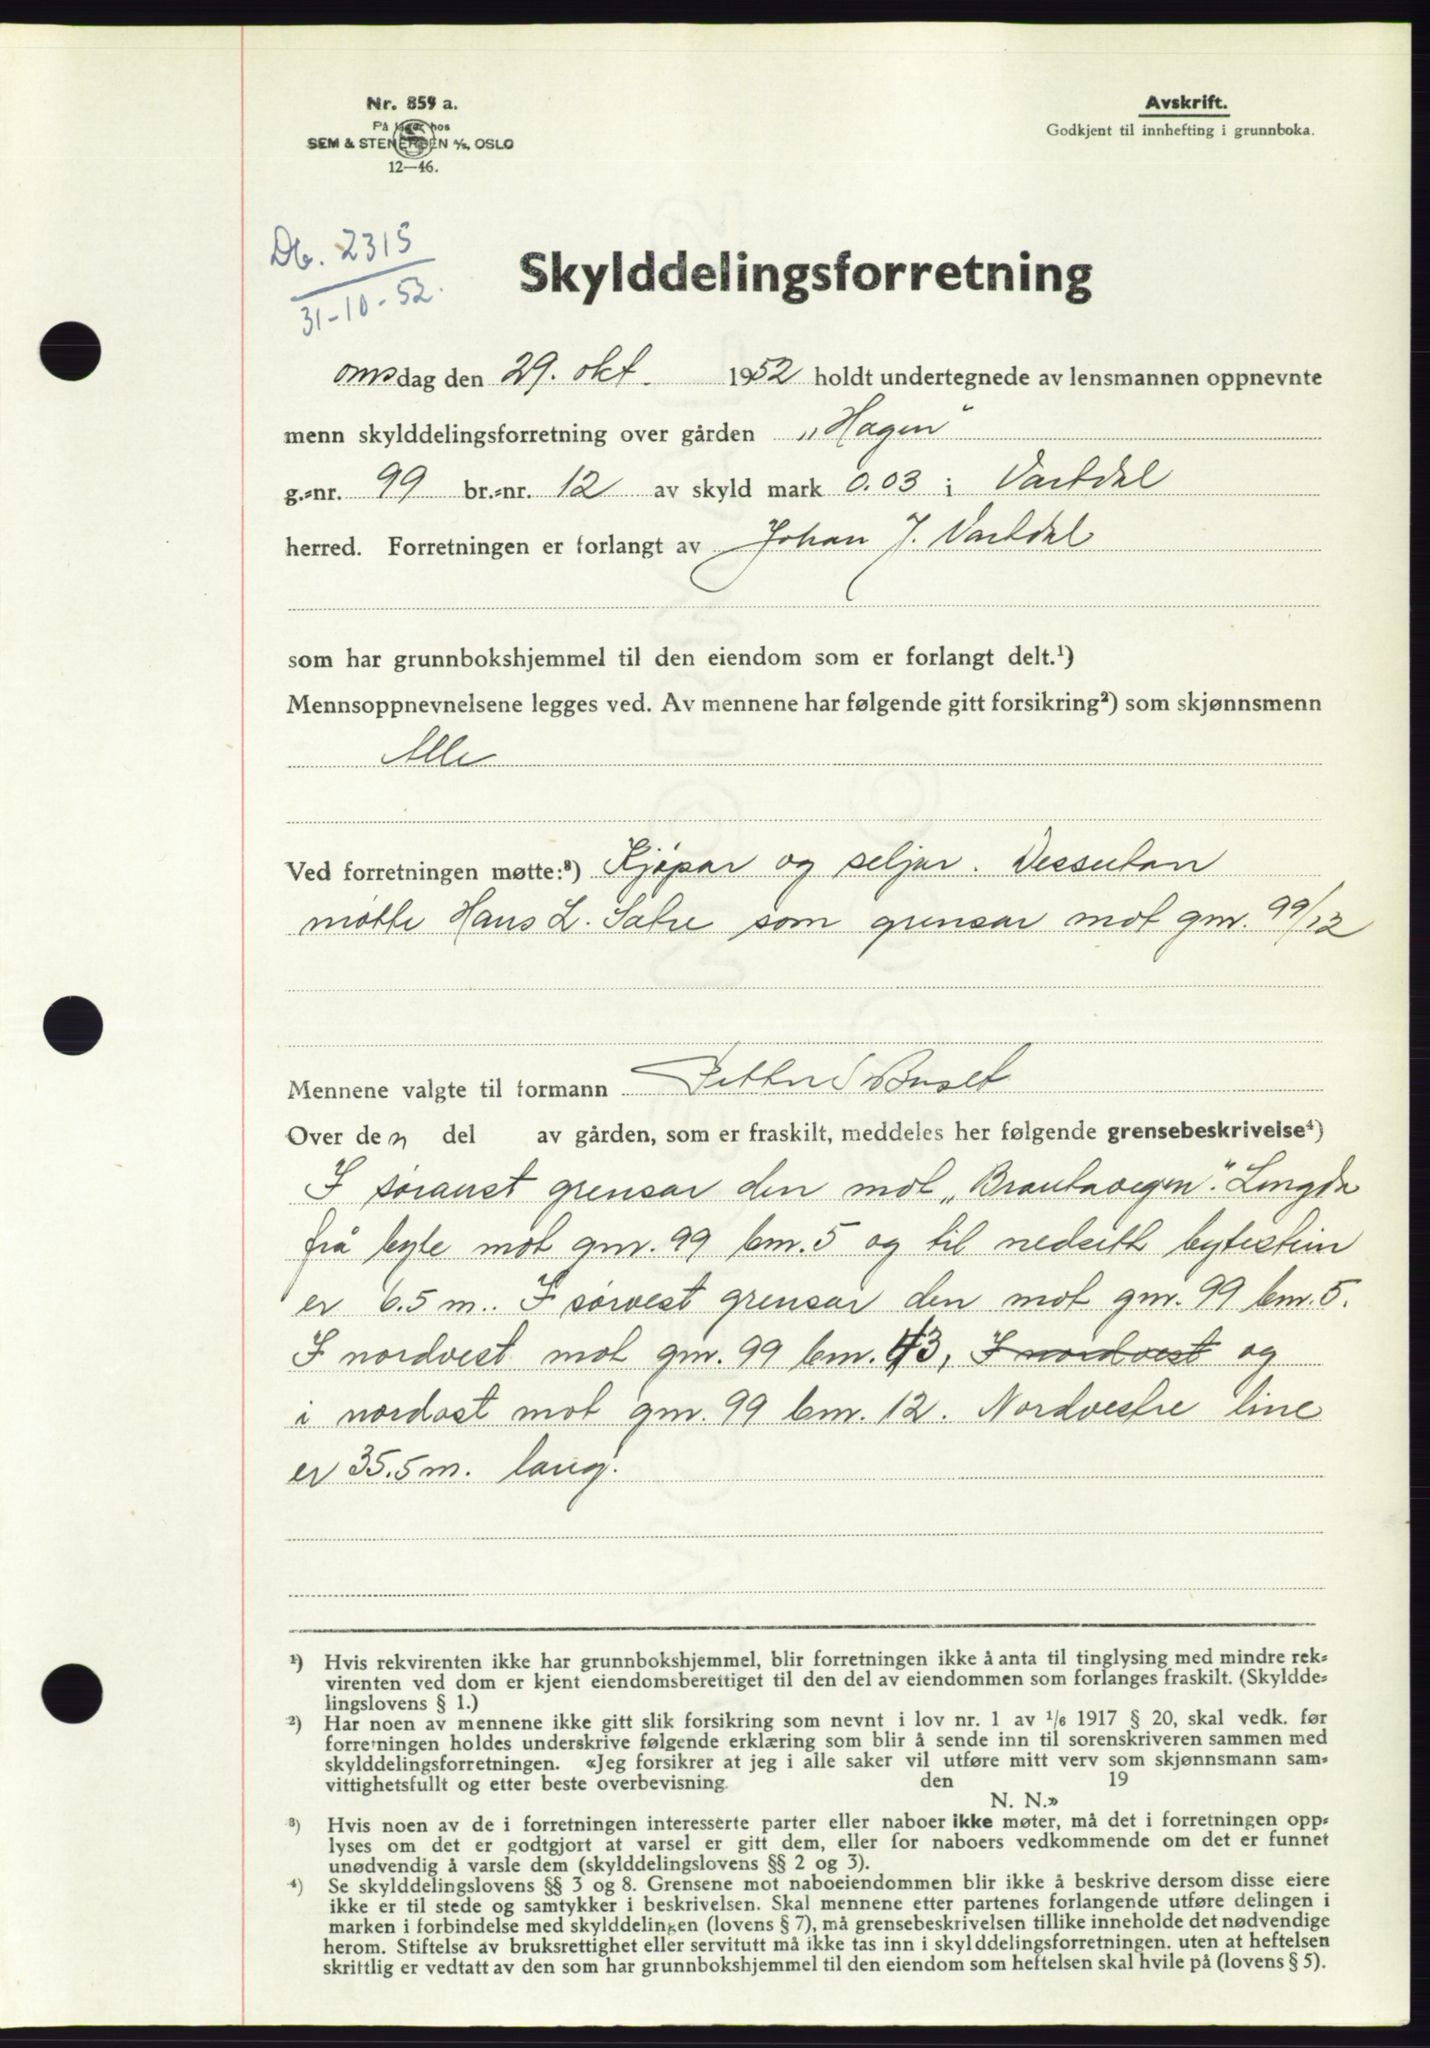 Nr. 859 a.
På lager hos
SEM & STENERSEN A/S, OSLO
12—46.
Avskrift.
Godkjent til innhefting i grunnboka.
Db. 2315
31-10-52.
Skylddelingsforretning
onsdag den 29. okt. 1952 holdt undertegnede av lensmannen oppnevnte
menn skylddelingsforretning over gården „Hagen"
g.=nr. 99 br.=nr. 12 av skyld mark 0.03 i Vartdal
herred. Forretningen er forlangt av Johan J. Vartdal
som har grunnbokshjemmel til den eiendom som er forlangt delt.¹)
Mennsoppnevnelsene legges ved. Av mennene har følgende gitt forsikring²) som skjønnsmenn
Alle
Ved forretningen møtte:³) Kjøpar og seljar. Dessutan
møtte Hans L. Sætre som grensar mot gnr. 99/12
Mennene valgte til formann Petter Buset
Over den del av gården, som er fraskilt, meddeles her følgende grensebeskrivelse⁴)
I søraust grensar den mot „Brautavegen". Lengda
frå byte mot gnr. 99 bnr. 5 og til nedsett bytestein
er 6.5 m.. I sørvest grensar den mot gnr. 99 bnr. 5.
I nordvest mot gnr. 99 bnr. 43, I nordvest og
i nordast mot gnr. 99 bnr. 12. Nordvestre line
er 35.5 m. lang.
¹) Hvis rekvirenten ikke har grunnbokshjemmel, blir forretningen ikke å anta til tinglysing med mindre rek=
virenten ved dom er kjent eiendomsberettiget til den del av eiendommen som forlanges fraskilt. (Skyldde=
lingslovens § 1.)
²) Har noen av mennene ikke gitt slik forsikring som nevnt i lov nr. 1 av 1/6 1917 § 20, skal vedk. før
forretningen holdes underskrive følgende erklæring som blir å sende inn til sorenskriveren sammen med
skylddelingsforretningen. «Jeg forsikrer at jeg i alle saker vil utføre mitt verv som skjønnsmann sam=
vittighetsfullt og etter beste overbevisning. den 19
N. N.»
³) Hvis noen av de i forretningen interesserte parter eller naboer ikke møter, må det i forretningen opp=
lyses om det er godtgjort at varsel er gitt dem, eller for naboers vedkommende om det er funnet
unødvendig å varsle dem (skylddelingslovens §§ 2 og 3).
⁴) Se skylddelingslovens §§ 3 og 8. Grensene mot naboeiendommen blir ikke å beskrive dersom disse eiere
ikke er til stede og samtykker i beskrivelsen. Skal mennene etter partenes forlangende utføre delingen i
marken i forbindelse med skylddelingen (lovens § 7), må grensebeskrivelsen tillike inneholde det nødvendige
herom. Stiftelse av bruksrettighet eller servitutt må ikke tas inn i skylddelingsforretningen. uten at heftelsen
skriftlig er vedtatt av den som har grunnbokshjemmel til den eiendom som heftelsen skal hvile på (lovens § 5).